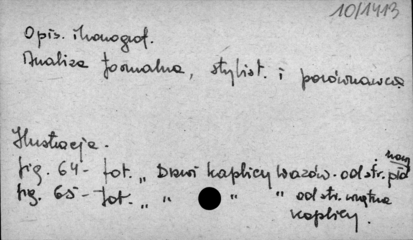 10/1413
Opis. ikonograf.
Analiza formalna, stylist. i porównawcza
Ilustracja.
fig. 64 - fot. „ Drzwi kaplicy Wazów. od str.
fig. 65 - fot. „ „ „ „ od str. wnętrza
kaplicy.